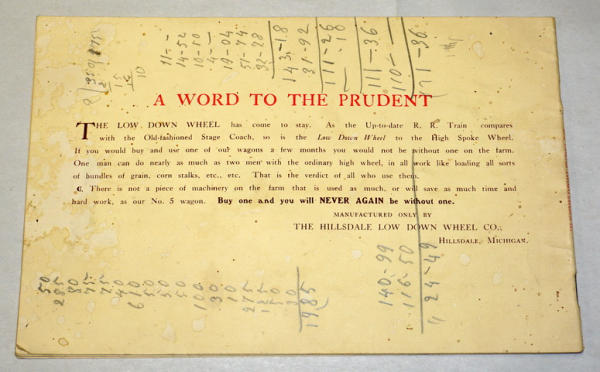 A WORD TO THE PRUDENT
THE LOW DOWN WHEEL has come to stay. As the Up-to-date R. R. Train compares
with the Old-fashioned Stage Coach, so is the Low Down Wheel to the High Spoke Wheel.
If you would buy and use one of our wagons a few months you would not be without one on the farm.
One man can do nearly as much as two men with the ordinary high wheel, in all work like loading all sorts
of bundles of grain, corn stalks, etc., etc. That is the verdict of all who use them.
¶ There is not a piece of machinery on the farm that is used as much, or will save as much time and
hard work, as our No. 5 wagon. Buy one and you will NEVER AGAIN be without one.
MANUFACTURED ONLY BY
THE HILLSDALE LOW DOWN WHEEL CO.,
HILLSDALE, MICHIGAN.
14-52
10-50
19-04
51-74
32-28
143-18
31-92
111-26
18
111-36
110-
140-99
116-50
24-49
1985